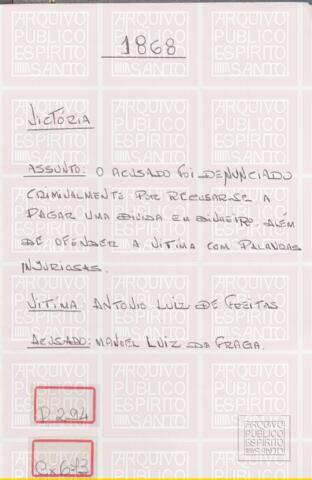 1868
VICTÓRIA
ASSUNTO: O ACUSADO FOI DENUNCIADO
CRIMINALMENTE POR RECUSAR-SE A
PAGAR UMA DIVIDA EM DINHEIRO, ALÉM
DE OFENDER A VITIMA COM PALAVRAS
INJURIOSAS.
VITIMA: ANTONIO LUIZ DE FREITAS
ACUSADO: MANOEL LUIZ DA FRAGA.
P. 294
Cx 673
ARQUIVO
PÚBLICO
ESPÍRITO
SANTO